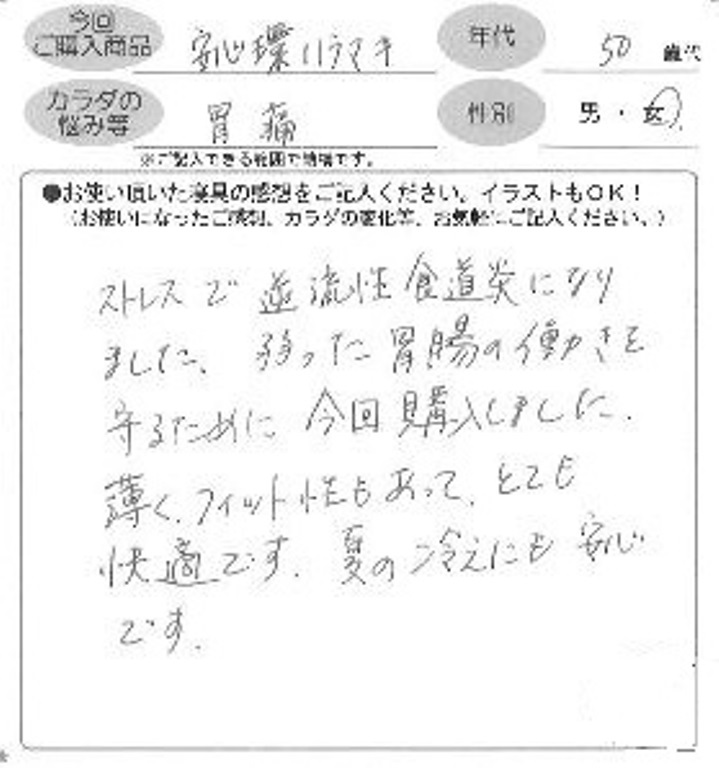 今回
ご購入商品
安心環ハラマキ
年代
50 歳代
カラダの
悩み等
胃痛
性別
男・女
※ご記入できる範囲で結構です。
●お使い頂いた寝具の感想をご記入ください。イラストもOK！
（お使いになったご感想、カラダの変化等、お気軽にご記入ください。）
ストレスで逆流性食道炎になり
ました、弱った胃腸の働きを
守るために今回購入しました.
薄く、フィット性もあって、とても
快適です. 夏の冷えにも安心
です.